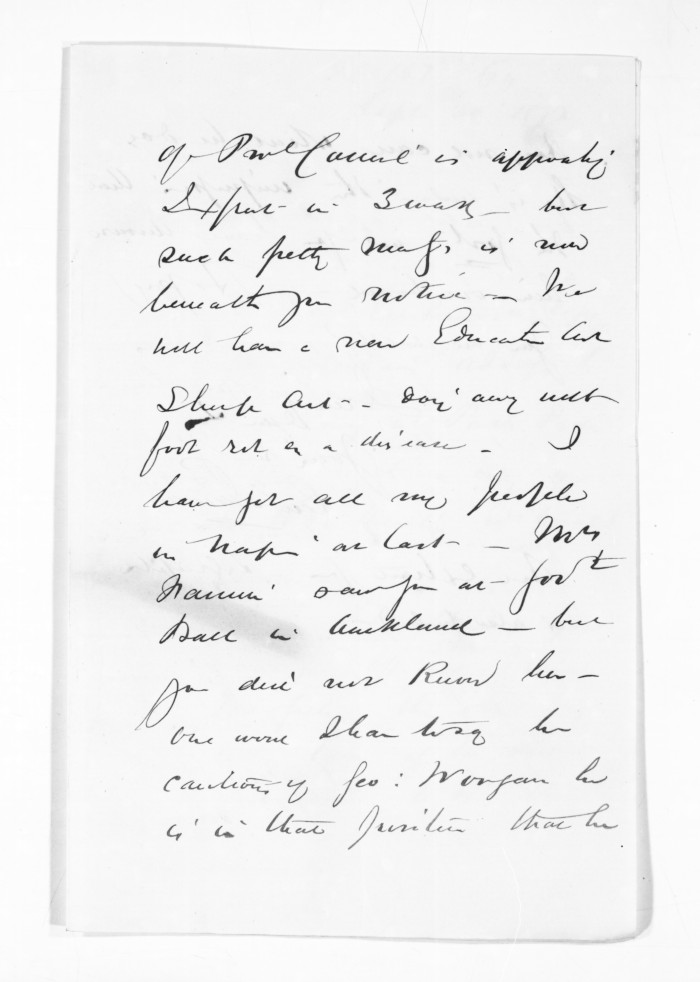 of Provl Council is approachg
in 3 weeks – but
such petty is now
beneath your notice – We
will have a new Education Act
Sheep Act – doing away with
foot rot as a disease – I
have got all my people
in Napier at last – Mrs
Fannin saw you at Govt
Ball in Auckland – but
you did not know her –
one word I have to say be
cautious of Geo: Worgan he
is in that position that he